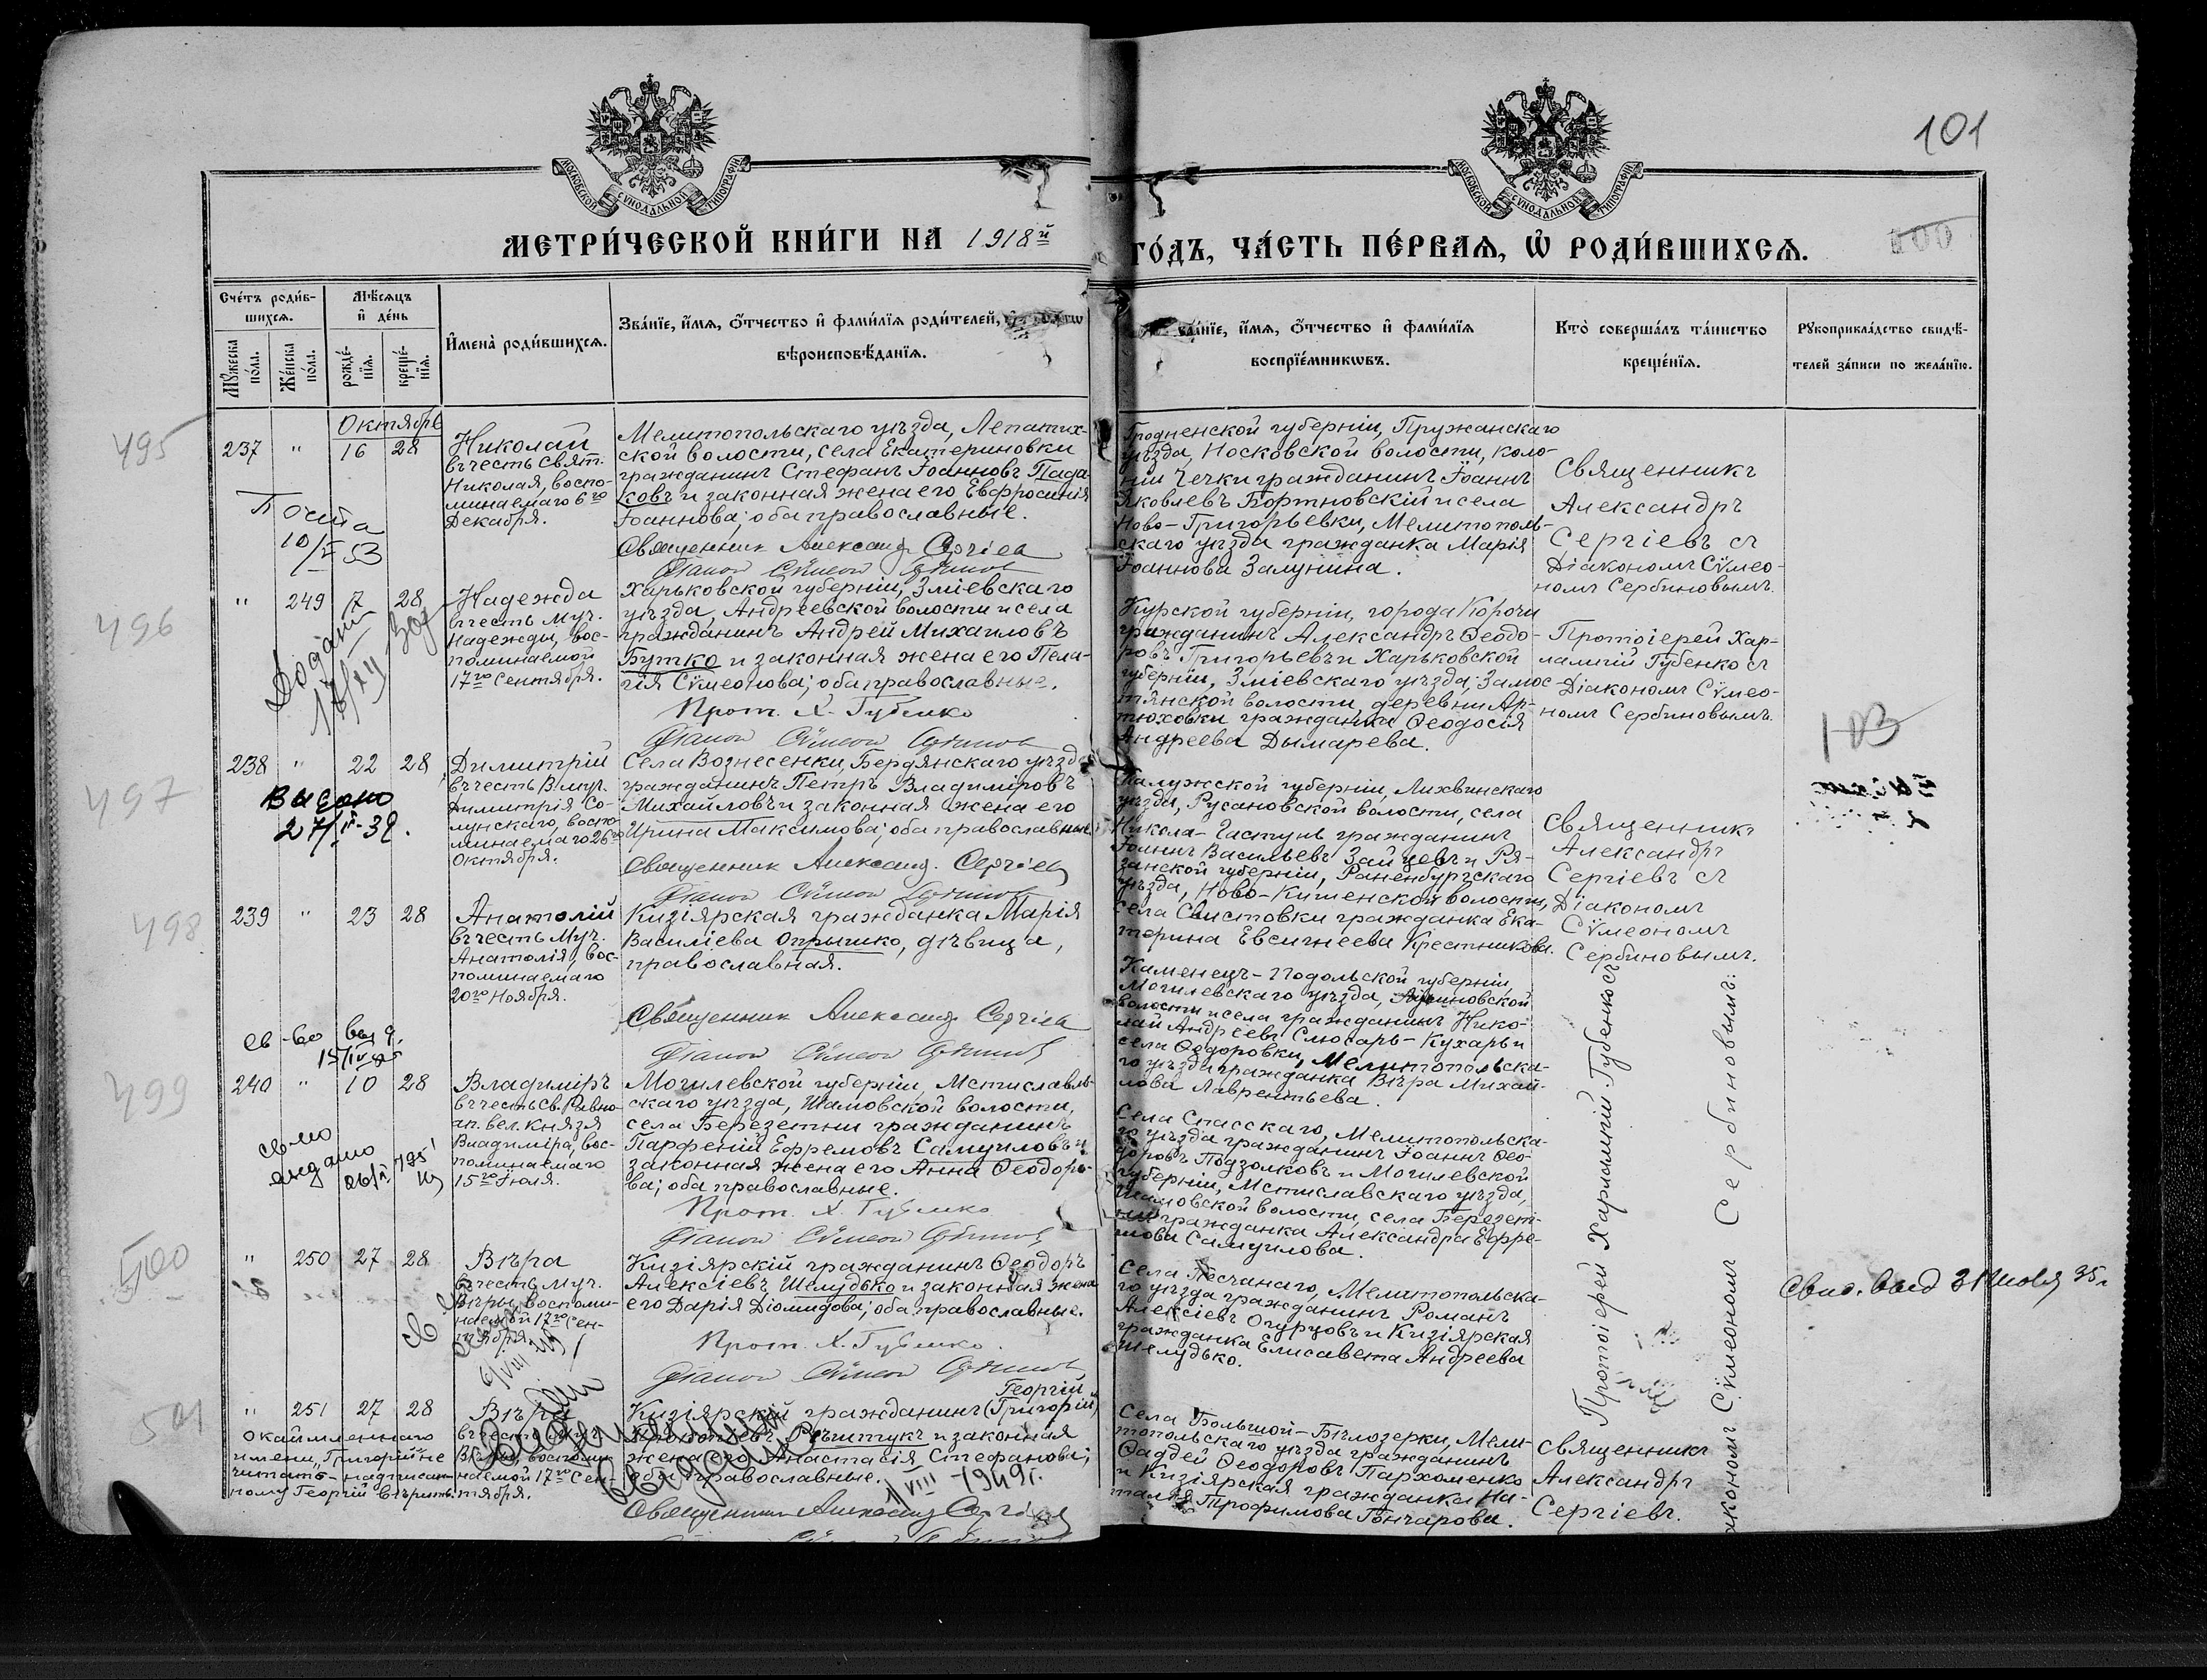 МОСКОВСКОЙ СѴНОДАЛЬНОЙ ТИПОГРАФІИ
МОСКОВСКОЙ СѴНОДАЛЬНОЙ ТИПОГРАФІИ
101
МЕТРИ́ЧЕСКОЙ КНИ́ГИ НА 1918й
ГО́ДЪ, ЧА́СТЬ ПЕ́РВАѦ, Ѡ РОДИ́ВШИХСѦ.
100
Сче́тъ роди́в-
шихсѧ.
Мѹжеска по́ла.
Же́нска по́ла.
Мѣ́сѧцъ
и҆ де́нь
рожде́-
нїѧ.
креще́-
нїѧ.
И҆мена̀ роди́вшихсѧ.
Зва́нїе, и҆́мѧ, ѻ҆́тчество и҆ фами́лїѧ роди́телей,
вѣроисповѣ́данїѧ.
и҆́мѧ, ѻ҆́тчество и҆ фами́лїѧ
воспрїе́мникѡвъ.
Кто̀ соверша́лъ та́инство
креще́нїѧ.
Рѹкоприкла́дство свидѣ́-
телей за́писи по жела́нїю.
495
Октябрь
237 " 16 28
Николай
въ честь Свят.
Николая, воспо-
минаемаго 6го
Декабря.
Мелитопольскаго уѣзда, Лепатих-
ской волости, села Екатериновки
гражданинъ Стефанъ Іоанновъ Пада-
ковъ и законная жена его Евфросинія
Іоаннова; оба православные.
Священник Александ. Сергіев
Діакон Сѵмеон
Гродненской губерніи, Пружанскаго
уѣзда, Носковской волости, коло-
ніи Чечки гражданинъ Іоаннъ
Яковлевъ Бортновскій и села
Ново-Григорьевки, Мелитополь-
скаго уѣзда гражданка Марія
Іоаннова Залунина.
Священникъ
Александръ
Сергіевъ съ
Діакономъ Сѵмео-
номъ Сербиновымъ.
10/ 53
496
" 249 17 28
Надежда
въ честь Муч.
Надежды, вос-
поминаемой
17го Сентября.
Харьковской губерніи, Зміевскаго
уѣзда, Андреевской волости и села
гражданинъ Андрей Михаиловъ
Бутко и законная жена его Пела-
гія Сѵмеонова; оба православные.
Прот. Х. Губенко
Діакон Сѵмеон
Курской губерніи, города Корочи
гражданинъ Александръ Ѳеодо-
ровъ Григорьевъ и Харьковской
губерніи, Зміевскаго уѣзда, Замос-
тянской волости, деревни Ар-
тюховки гражданка Ѳеодосія
Андреева Дымарева.
Протоіерей Хар-
лампій Губенко съ
Діакономъ Сѵмео-
номъ Сербиновымъ.
103
497
238 " 22 28
Димитрій
въ честь Вмуч.
Димитрія Со-
лунскаго, воспо-
минаемаго 26го
Октября.
Села Вознесенки, Бердянскаго уѣзда
гражданинъ Петръ Владиміровъ
Михайловъ и законная жена его
Ирина Максимова; оба православные.
Священник Александ. Сергіев
Діакон Сѵмеон
Калужской губерніи, Лихвинскаго
уѣзда, Русановской волости, села
Никола-Гастунь гражданинъ
Іоаннъ Васильевъ Зайцевъ и Ря-
занской губерніи, Раненбургскаго
уѣзда, Ново-Кишенской волости,
села Свистовки гражданка Ека-
терина Евсигнеева Крестникова.
Священникъ
Александръ
Сергіевъ съ
Діакономъ
Сѵмеономъ
Сербиновымъ.
Выдано
27/II-39.
498
239 " 23 28
Анатолій
въ честь Муч.
Анатолія, вос-
поминаемаго
20го Ноября.
Кизіярская гражданка Марія
Василіева Опрышко, дѣвица,
православная.
Священник Александ. Сергіев
Діакон Сѵмеон
Каменецъ-Подольской губерніи,
Могилевскаго уѣзда,
волости и села гражданинъ Нико-
лай Андреевъ Слюсарь-Кухарь и
села Ѳедоровки, Мелитопольска-
го уѣзда гражданка Вѣра Михай-
лова Лаврентьева.
Протоіерей Харлампій Губенко съ
Діакономъ Сѵмеономъ Сербиновымъ.
499
240 " 10 28
Владиміръ
въ честь Св. Равно-
ап. вел. Князя
Владиміра, вос-
поминаемаго
15го Іюля.
Могилевской губерніи, Мстиславль-
скаго уѣзда, Шамовской волости,
села Березетни гражданинъ
Парфеній Ефремовъ Самуиловъ и
законная жена его Анна Ѳеодоро-
ва; оба православные.
Прот. Х. Губенко
Діакон Сѵмеон
Села Спасскаго, Мелитопольска-
го уѣзда гражданинъ Іоаннъ Ѳео-
доровъ Подзолковъ и Могилевской
губерніи, Мстиславскаго уѣзда,
Шамовской волости, села Березет-
ни гражданка Александра Ефре-
мова Самуилова.
500
" 250 27 28
Вѣра
въ честь Муч.
Вѣры, воспоми-
наемой 17го Сен-
тября.
Кизіярскій гражданинъ Ѳеодоръ
Алексіевъ Шелудько и законная жена
его Дарія Діомидова; оба православные.
Прот. Х. Губенко
Діакон Сѵмеон
Села Песчанаго, Мелитопольска-
го уѣзда гражданинъ Романъ
Алексіевъ Огурцовъ и Кизіярская
гражданка Елисавета Андреева
Шелудько.
Свид. выд 31 Июля 35 г
501
" 251 27 28
Вѣра
въ честь Муч.
Вѣры, воспоми-
наемой 17го Сен-
тября.
Окаймленнаго
имени "Григорій" не
читать - надписан-
ному Георгій вѣрить.
Георгій
Кизіярскій гражданинъ (Григорій)
Прокопіевъ Решитукъ и законная
жена его Анастасія Стефанова;
оба православные.
VIII 1949 г.
Священник Александ Сергіев
Села Большой-Бѣлозерки, Мели-
топольскаго уѣзда гражданинъ
Ѳаддей Ѳеодоровъ Пархоменко
и Кизіярская гражданка На-
талія Трофимова Гончарова.
Священникъ
Александръ
Сергіевъ.